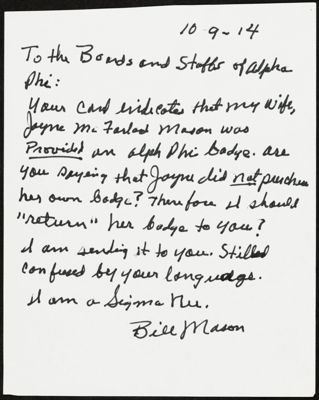 10-9-14
To the Boards and Staffs of Alpha
Phi:
Your card indicates that my wife,
Jayne McFarland Mason was
Provided an alph Phi badge. are
you saying that Jayne did not purchase
her own badge? Therefore it should
"return" her badge to you?
I am sending it to you. Still
confused by your language.
I am a Sigma Nu.
Bill Mason